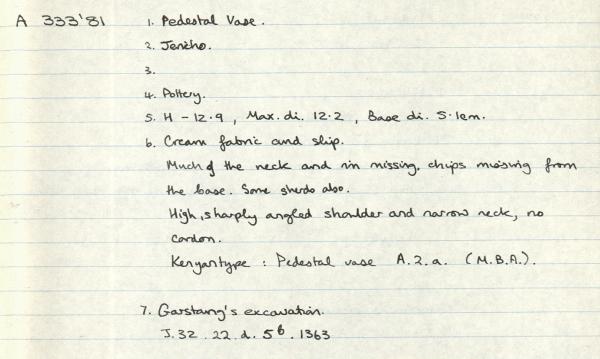 A 333'81 1. Pedestal Vase.
2. Jericho.
3.
4. Pottery.
5. H - 12.9, Max. di. 12.2, Base di. 5.1cm.
6. Cream fabric and slip.
Much of the neck and rim missing, chips missing from
the base. Some sherds also.
High, sharply angled shoulder and narrow neck, no
cordon.
Kenyan type : Pedestal vase A.2.a. (M.B.A.).
7. Garstang's excavation.
J. 32. 22. d. 5⁶. 1363